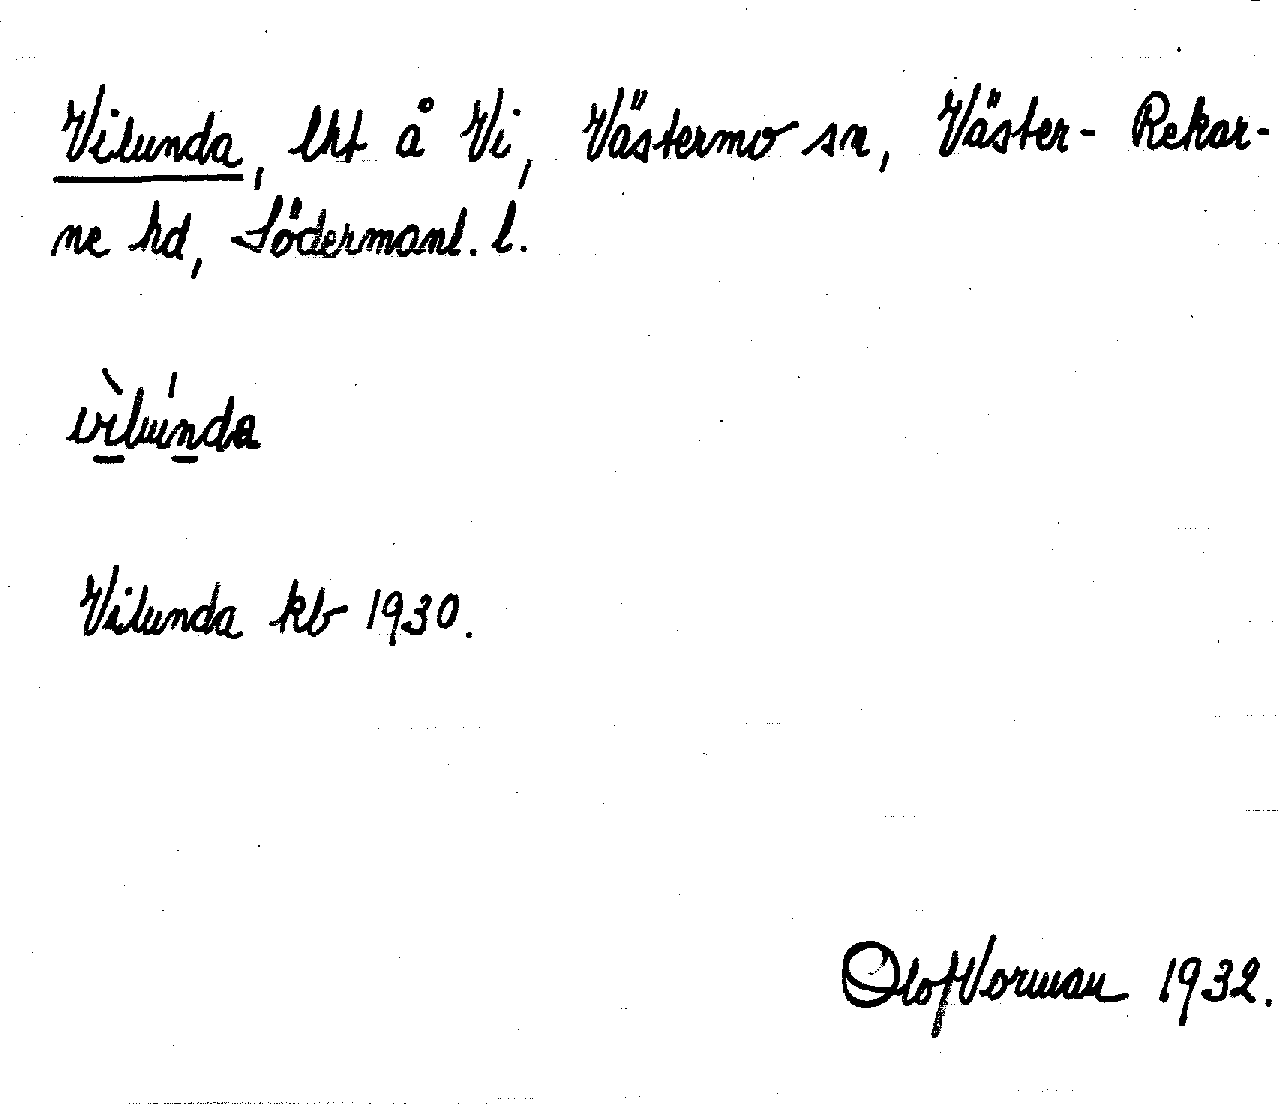 Vilunda, lht å Vi, Västermo sn, Väster-Rekar-
ne hd, Södermanl. l.
vìlúnda
Vilunda kb 1930.
Olof Vorman 1932.